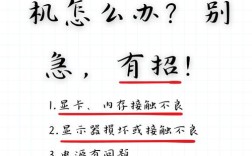 机怎么办？别
急，有招！
1.显卡、内存接触不良
2.显示器损坏或接触不良
3.电源有问题